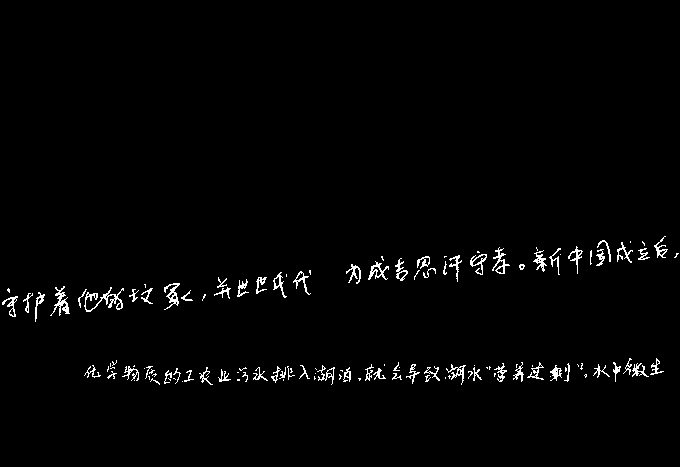 守护着他的坟冢，并世世代代 为成吉思汗守孝。新中国成立后，
化学物质的工农业污水排入湖泊，就会导致湖水“营养过剩”，水中微生